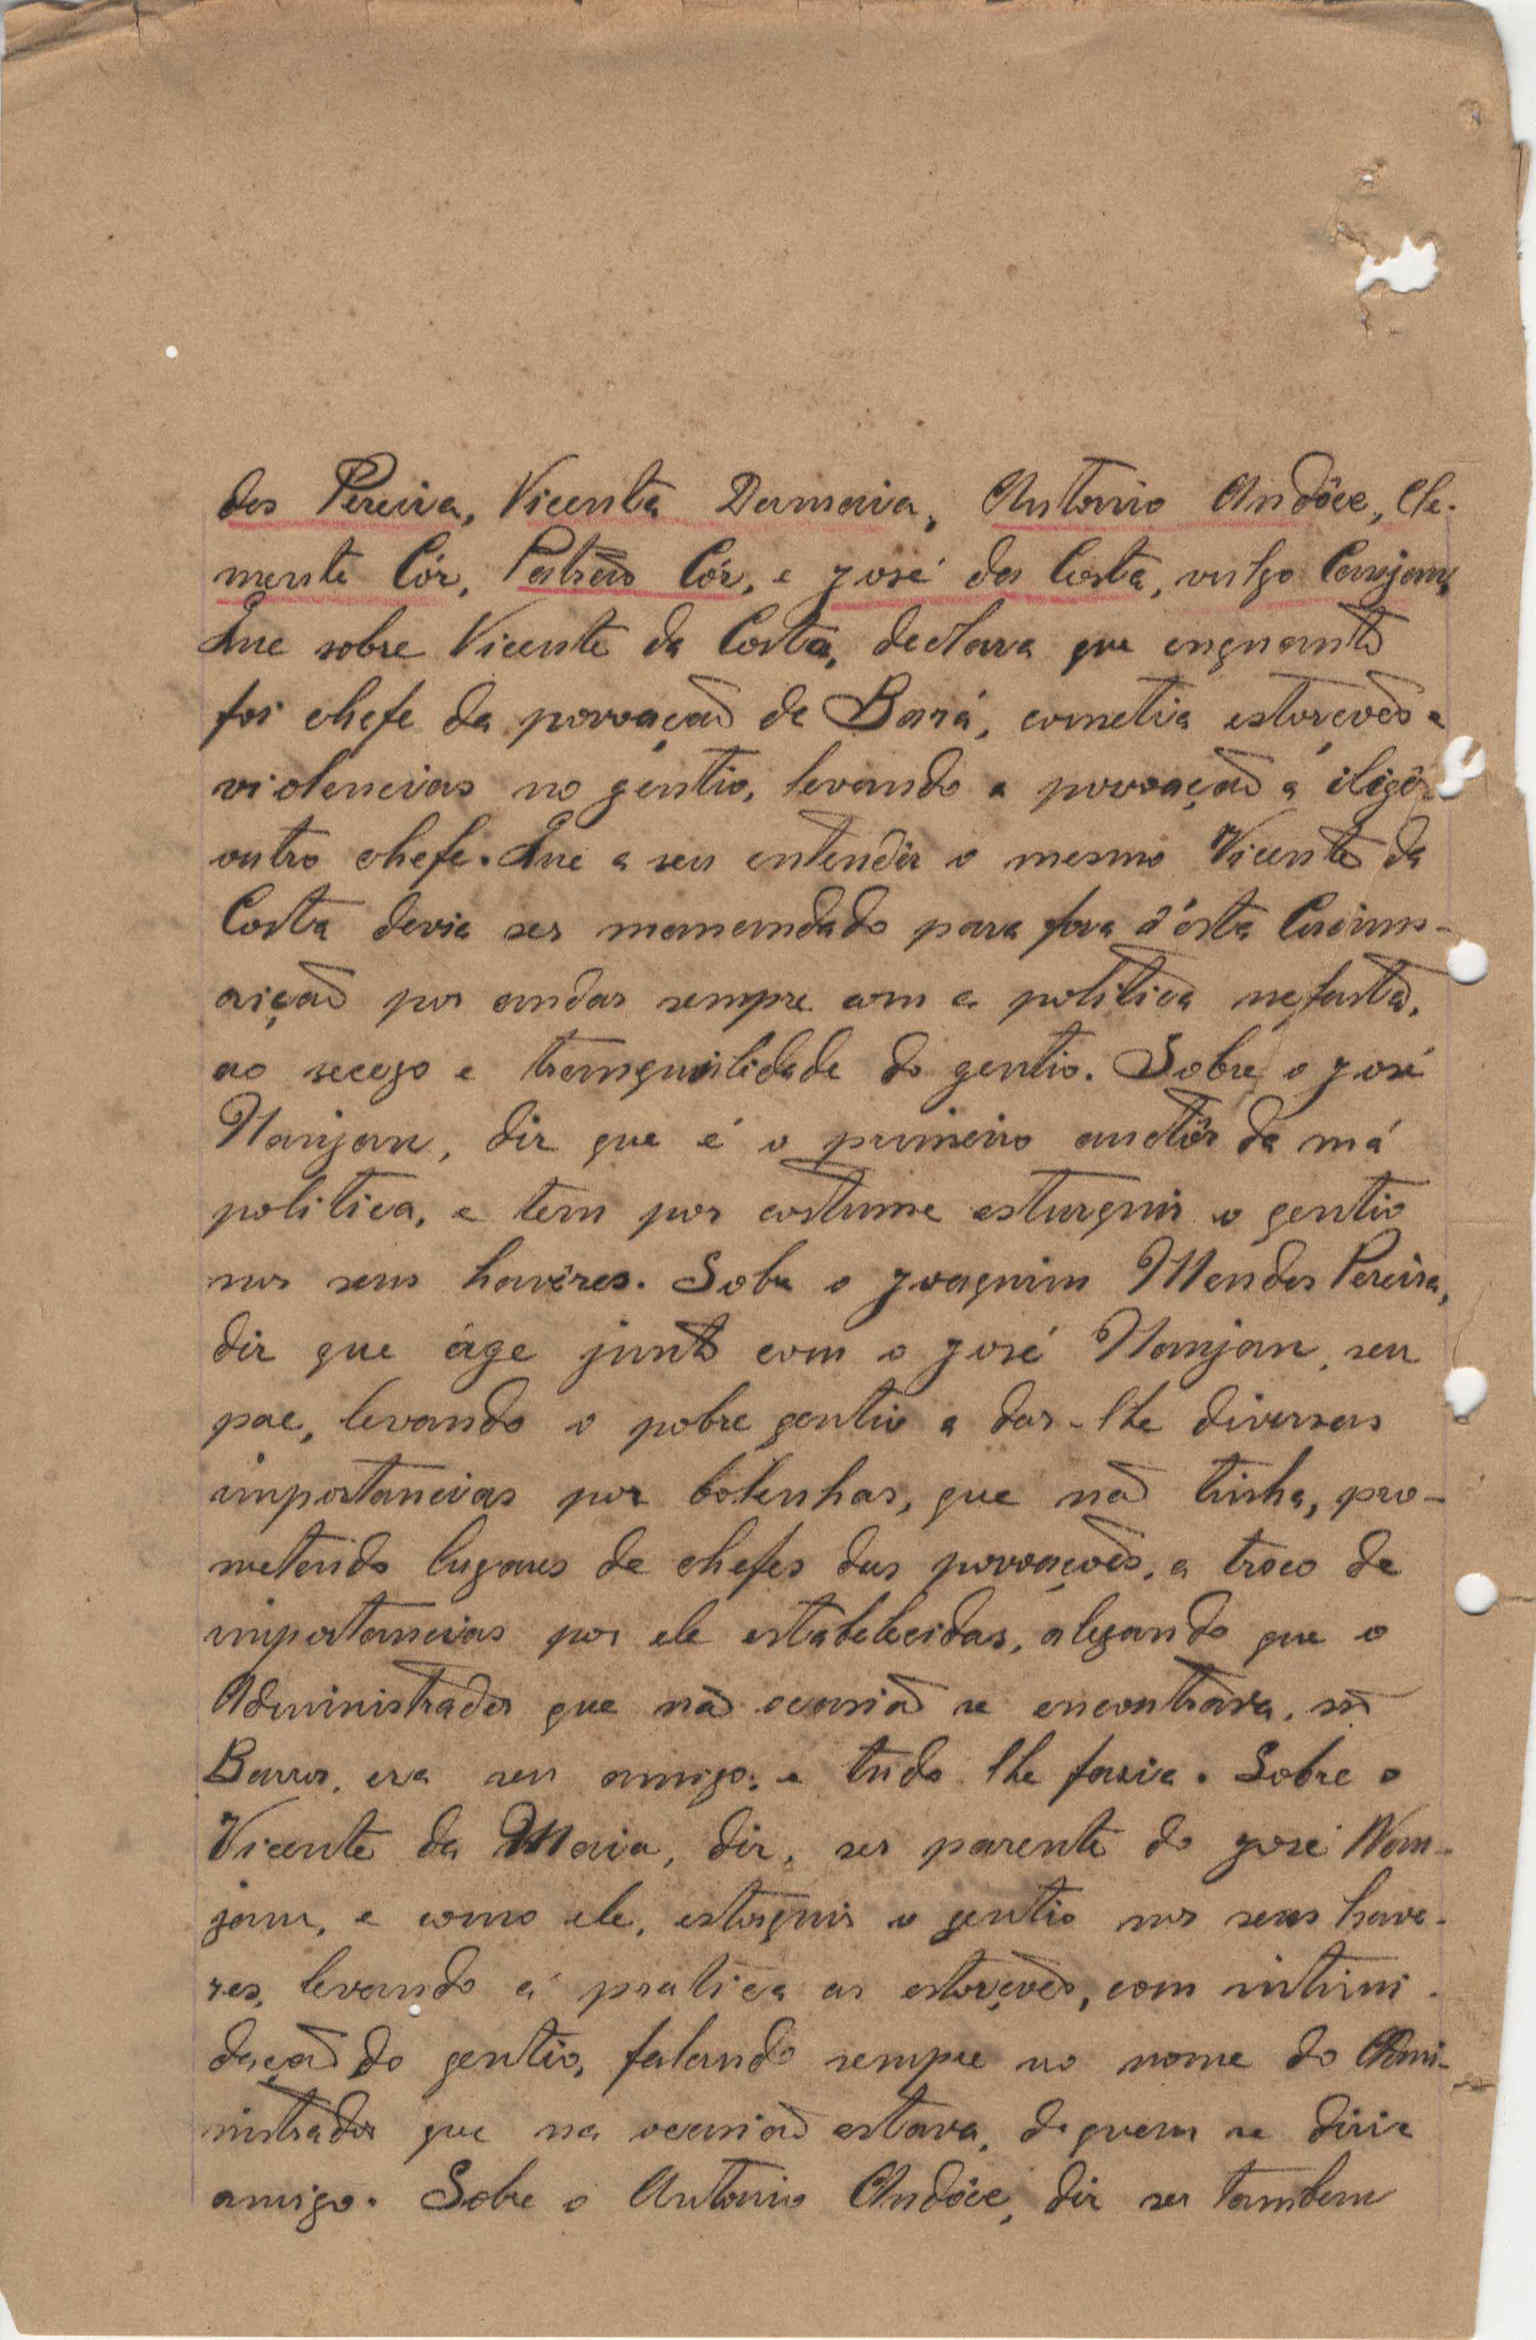 des Pereira, Vicente Damaia, Antonio Andôce, Cle-
mente Côr, Patrão Côr, e José da Costa, vulgo Canjam,
Que sobre Vicente da Costa, declara que enquanto
foi chefe da povoação de Bará, cometia estorções e
violencias no gentio, levando a povoação á iligêr
outro chefe. Que a seu entendêr o mesmo Vicente da
Costa devia ser mamandado para fora d'ésta Circuns-
crição por andar sempre com a politica nefasta,
ao secego e tranquilidade do gentio. Sobre o José
Nanjan, diz que é o primeiro auctôr da má
politica, e tem por costume esturquir o gentio
nos seus havêres. Sobre o Joaquim Mendes Pereira,
diz que áge junto com o José Nanjan, seu
pae, levando o pobre gentio a dar-lhe diversas
importancias por bolenhas, que não tinha, pro-
metendo lugares de chefes das povoações, a troco de
importancias por ele estabelecidas, alegando que o
Administrador que na ocasião se encontrava, snr
Barros, era seu amigo, e tudo lhe fazia. Sobre o
Vicente da Maia, diz, ser parente do José Nan-
jam, e como ele, estorquir o gentio nos seus have-
res, levando á pratica as estorções, com intimi-
dação do gentio, falando sempre no nome do Admi-
nistrador que na ocasião estava, de quem se dizia
amigo. Sobre o Antonio Andôce, diz ser tambem